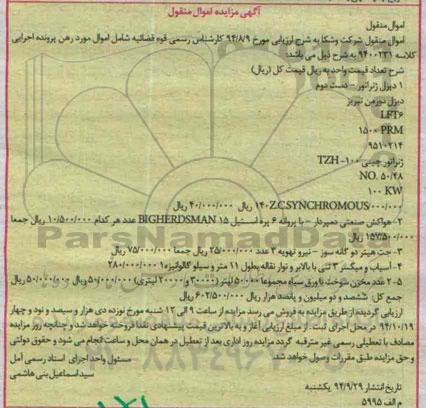 آگهی مزایده اموال منقول
اموال منقول
اموال منقول شرکت وشکا به شرح ارزیابی مورخ ۹۴/۸/۹ کارشناس رسمی قوه قضائیه شامل اموال مورد رهن پرونده اجرایی
کلاسه ۹۴۰۰۲۳۱ به شرح ذیل می باشد:
شرح تعداد قیمت واحد به ریال قیمت کل (ریال)
۱ دیزل ژنراتور – دست دوم
دیزل دورمن تبریز
LFT۶
۱۵۰۰ PRM
۹۵۱۰۲۱۴
ژنراتور چینی TZH-۱۰۰
NO. ۵۰/۴۸
۱۰۰ KW
۱۴۰Z.C.SYNCHROMOUS/۰۰۰/۰۰۰ ریال ۴۰/۰۰۰/۰۰۰ ریال
۲- هواکش صنعتی دمپردار – با پروانه ۶ پره استیل BIGHERDSMAN ۱۵ عدد هر کدام ۱۰/۵۰۰/۰۰۰ ریال جمعا
۱۵۷/۵۰۰/۰۰۰ ریال
ParsNamadData.com
۳- جت هیتر دو گانه سوز – نیرو تهویه ۳ عدد ۲۵/۰۰۰/۰۰۰ ریال جمعا ۷۵/۰۰۰/۰۰۰ ریال
۴- آسیاب و میکسر ۳ تنی با بالابر و نوار نقاله بطول ۱۱ متر و سیلو گالوانیزه ۱ ۲۸۰/۰۰۰/۰۰۰
۵- ۲ عدد مخزن سوخت با ورق سیاه مجموعا ۵۰۰۰۰ لیتر (۳۰۰۰۰ و ۲۰۰۰۰ لیتری) ۵۰/۰۰۰/۰۰۰ ریال ۵۰/۰۰۰/۰۰۰ ریال
جمع کل: ششصد و دو میلیون و پانصد هزار ریال ۶۰۲/۵۰۰/۰۰۰ ریال
ارزیابی گردیده از طریق مزایده به فروش می رسد مزایده از ساعت ۹ الی ۱۲ شنبه مورخ نوزده دی هزار و سیصد و نود و چهار
۹۴/۱۰/۱۹ در محل اجرای ثبت. از مبلغ ارزیابی آغاز و به بالاترین قیمت پیشنهادی نقدا فروخته خواهد شد و چنانچه روز مزایده
مصادف با تعطیلی رسمی غیر مترقبه گردد مزایده روز اداری بعد از تعطیل در همان محل و ساعت انجام می شود و حقوق دولتی
و حق مزایده طبق مقررات وصول خواهد شد.
مسئول واحد اجرای اسناد رسمی آمل
سید اسماعیل بنی هاشمی
تاریخ انتشار ۹۴/۹/۲۹ یکشنبه
م الف ۵۹۹۵